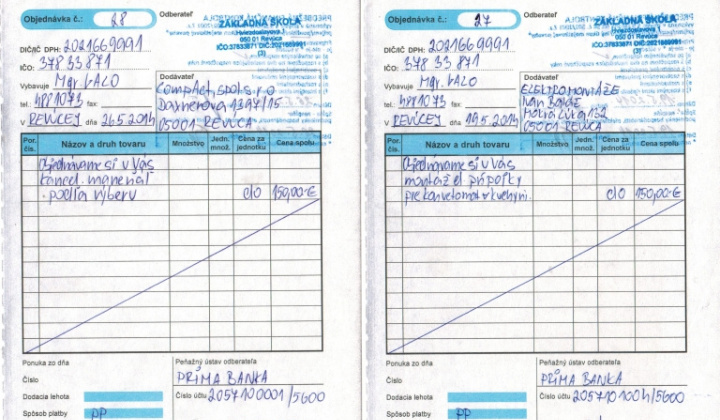 Objednávka č.: 28
Odberateľ
ZÁKLADNÁ ŠKOLA
Hviezdoslavova
050 01 Revúca
IČO:37833871 DIČ:2021669991
(3)
DIČ/IČ DPH: 2021669991
IČO: 378 33 871
Vybavuje Mgr. VALO
tel.: 4881073 fax:
V REVÚCEJ dňa 26.5.2014
Dodávateľ
CompAct, spol. s r.o
Daxnerova 1297/15
05001 REVÚCA
Por. čís. Názov a druh tovaru Množstvo Jedn. množ. Cena za jednotku Cena spolu
Objednávame si u Vás
kancel. materiál
podľa výberu c/o 150,00 €
Ponuka zo dňa
Číslo
Dodacia lehota
Spôsob platby PP
Peňažný ústav odberateľa
PRIMA BANKA
Číslo účtu 2057100001/5600
Objednávka č.: 27
Odberateľ
ZÁKLADNÁ ŠKOLA
Hviezdoslavova
050 01 Revúca
IČO:37833871 DIČ:2021669991
(3)
DIČ/IČ DPH: 2021669991
IČO: 378 33 871
Vybavuje Mgr. VALO
tel.: 4881073 fax:
V REVÚCEJ dňa 19.5.2014
Dodávateľ
ELEKTROMONTÁŽE
Ivan
05001 REVÚCA
Por. čís. Názov a druh tovaru Množstvo Jedn. množ. Cena za jednotku Cena spolu
Objednávame si u Vás
montáž el. prípojky
pre konvektomat v kuchyni c/o 150,00 €
Ponuka zo dňa
Číslo
Dodacia lehota
Spôsob platby PP
Peňažný ústav odberateľa
PRIMA BANKA
Číslo účtu 2057101004/5600